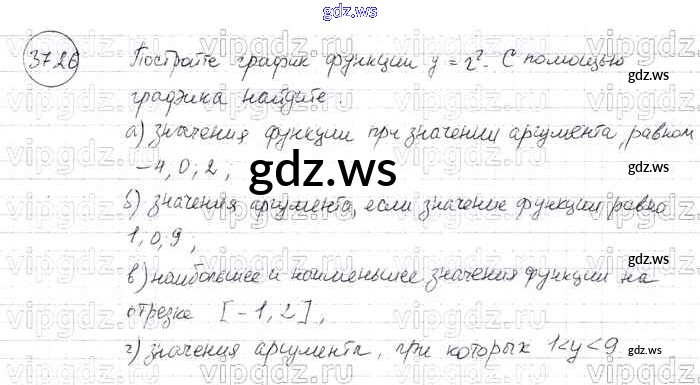 gdz.ws
37.26 Постройте график функции y = x². С помощью
графика найдите:
а) значения функции при значении аргумента, равном
-4, 0, 2;
б) значения аргумента, если значение функции равно
1, 0, 9;
в) наибольшее и наименьшее значения функции на
отрезке [-1, 2];
г) значения аргумента, при которых 1<y<9.
gdz.ws
gdz.ws
gdz.ws
gdz.ws
gdz.ws
vipgdz.ru